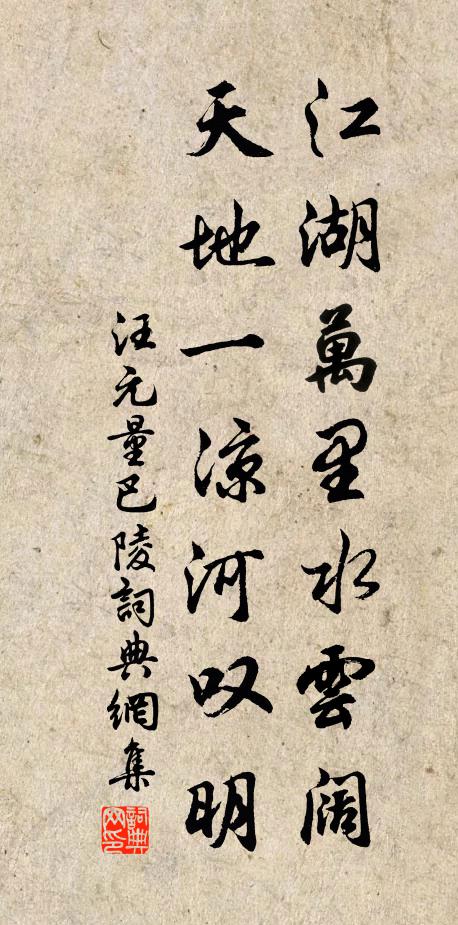 江湖萬里水雲闊
天地一凉河叹明
汪元量巴陵詞典網集
詞典網印